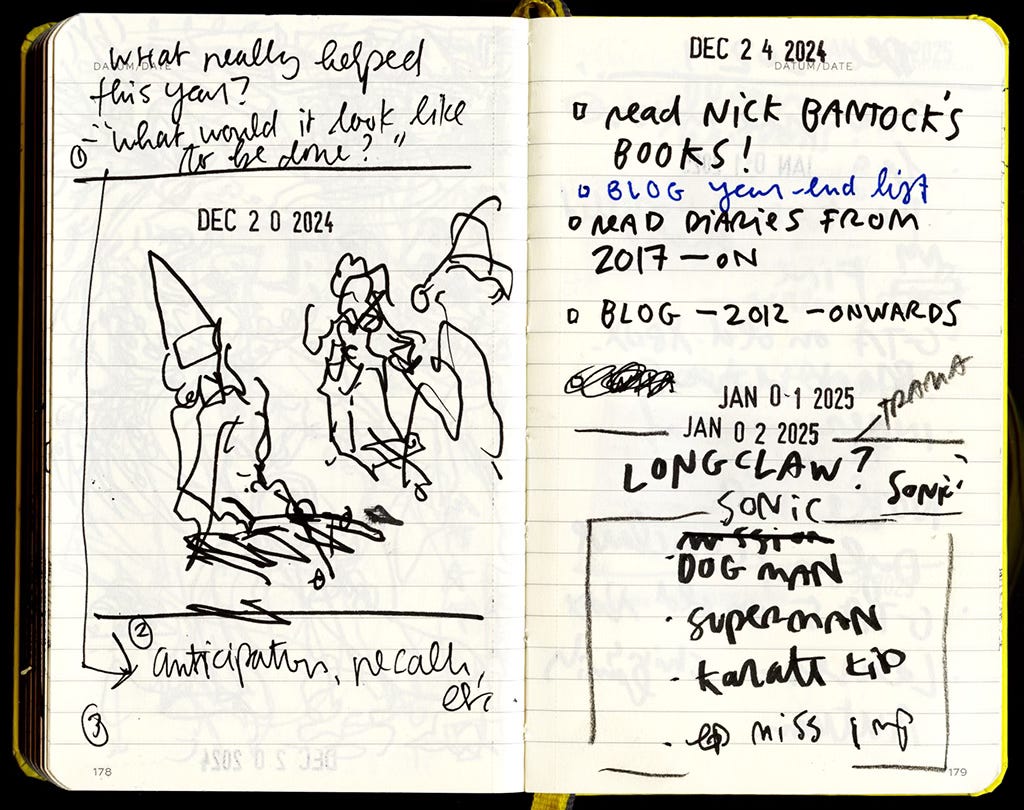 DATUM/DATE
What really helped
this year?
① - "what would it look like
to be done?"
DEC 2 0 2024
②
anticipation, recall,
etc
③
178
DEC 2 4 2024
DATUM/DATE
read NICK BANTOCK'S
BOOKS!
BLOG year-end list
READ DIARIES FROM
2017 — ON
BLOG — 2012 — ONWARDS
JAN 0 1 2025
TRAMA
JAN 0 2 2025
LONGCLAW?
SONIC
SONIC
mission
· DOG MAN
· SUPERMAN
· karate kid
miss
179